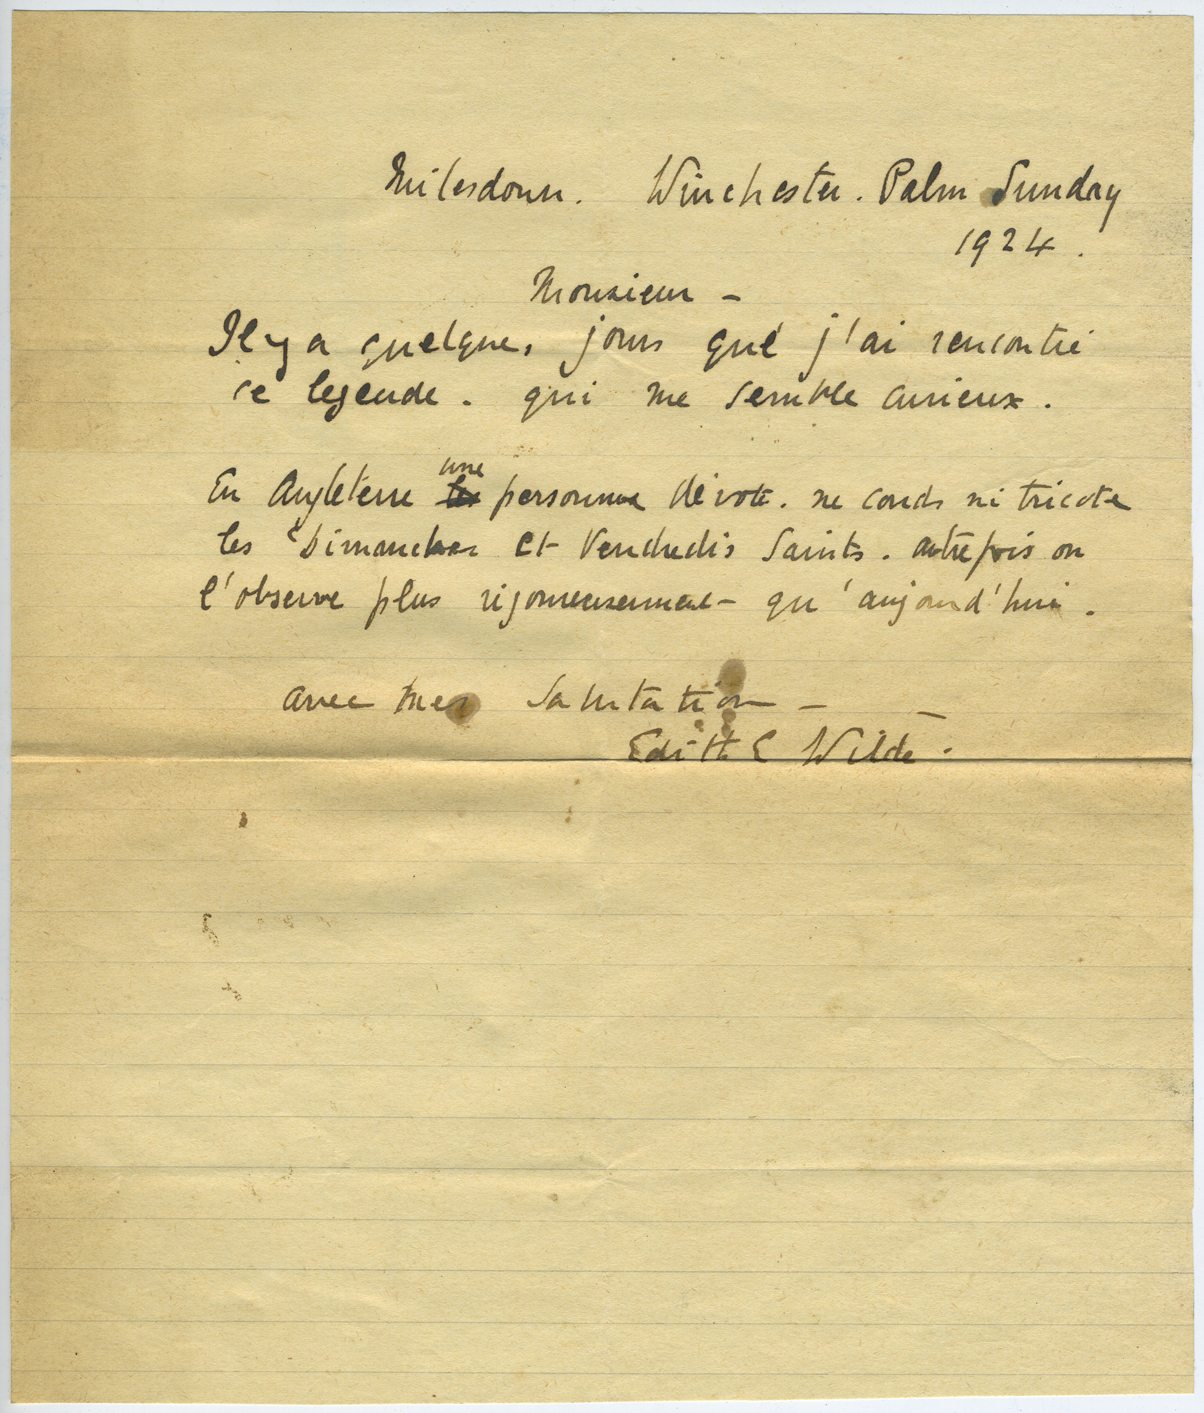 Milesdown. Winchester. Palm Sunday
1924.
Monsieur –
Il y a quelques jours que j'ai rencontré
ce legende. qui me semble curieux.
En Angleterre une personne dévote. ne couds ni tricote
les Dimanches et Vendredis Saints. autrefois on
l'observe plus rigoureusement qu'aujourd'hui.
avec mes salutation –
Edith E Wilde.